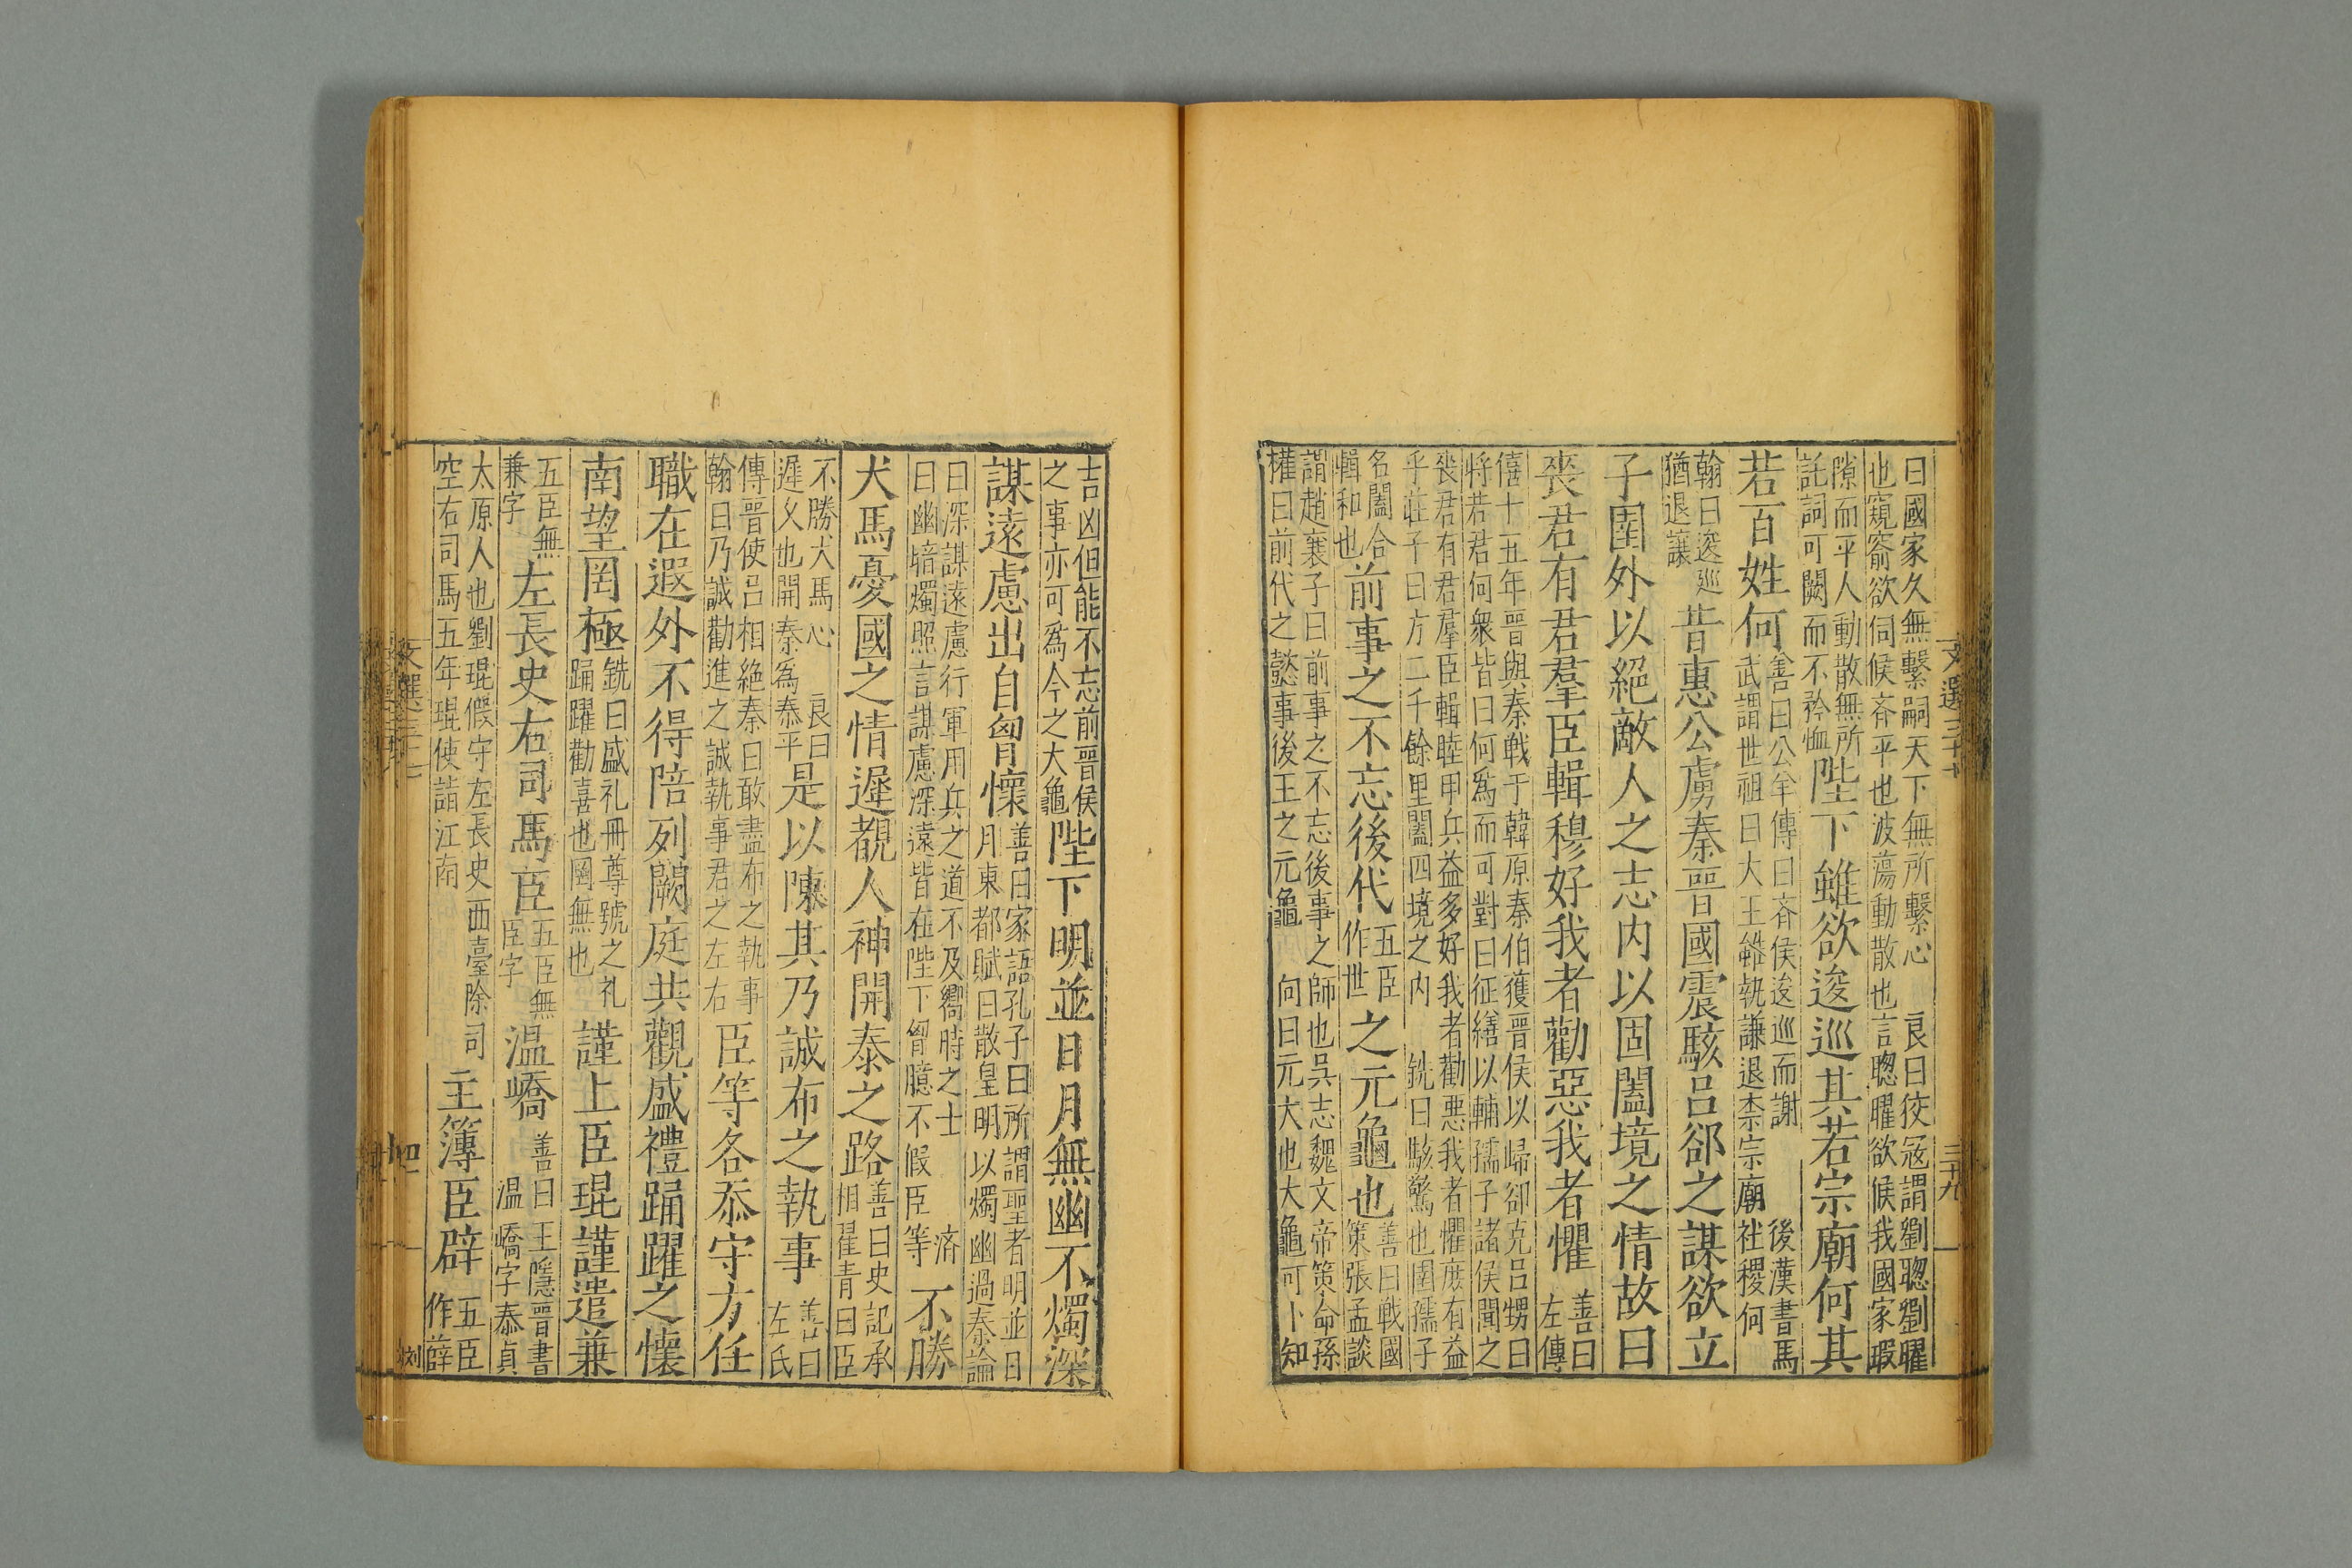 曰國家久無繫嗣天下無所繫心　良曰狡寇謂劉聰劉曜
也窺窬欲伺候吝平也波蕩動散也言聰曜欲候我國家瑕
隙而平人動散無所
託詞可闕而不矜恤
陛下雖欲逡巡其若宗廟何其
若百姓何
善曰公羊傳曰吝侯逡巡而謝　後漢書馬
武謂世祖曰大王雖執謙退柰宗廟社稷何
翰曰逡巡
猶退讓
昔惠公虜秦晉國震駭呂郤之謀欲立
子圉外以絕敵人之志内以固闔境之情故曰
喪君有君羣臣輯穆好我者勸惡我者懼
善曰
左傳
僖十五年晉與秦戰于韓原秦伯獲晉侯以歸卻克呂甥曰
將若君何衆皆曰何爲而可對曰征繕以輔孺子諸侯聞之
喪君有君羣臣輯睦甲兵益多好我者勸惡我者懼庶有益
乎莊子曰方二千餘里闔四境之内　銑曰駭驚也圉孺子
名闔合
輯和也
前事之不忘後代
五臣
作世
之元龜也
善曰戰國
策張孟談
謂趙襄子曰前事之不忘後事之師也吳志魏文帝策命孫
權曰前代之懿事後王之元龜　向曰元大也大龜可卜知
文選三十七
三十九
吉凶但能不忘前晉侯
之事亦可爲今之大龜
陛下明並日月無幽不燭深
謀遠慮出自胷懷
善曰家語孔子曰所謂聖者明並日
月東都賦曰散皇明以燭幽過秦論
曰深謀遠慮行軍用兵之道不及嚮時之士　濟
曰幽暗燭照言謀慮深遠皆在陛下胷臆不假臣等
不勝
犬馬憂國之情遲覩人神開泰之路
善曰史記丞
相翟青曰臣
不勝犬馬心　良曰
遲乆也開泰爲泰平
是以陳其乃誠布之執事
善曰
左氏
傳晉使呂相絕秦曰敢盡布之執事
翰曰乃誠勸進之誠執事君之左右
臣等各忝守方任
職在遐外不得陪列闕庭共觀盛禮踊躍之懷
南望罔極
銑曰盛礼冊尊號之礼
踊躍勸喜也罔無也
謹上臣琨謹遣兼
五臣無
兼字
左長史右司馬臣
五臣無
臣字
温嶠
善曰王隱晉書
温嶠字泰貞
太原人也劉琨假守左長史西臺除司
空右司馬五年琨使詣江南
主簿臣辟
五臣
作薛
文選三十七
四十
刘